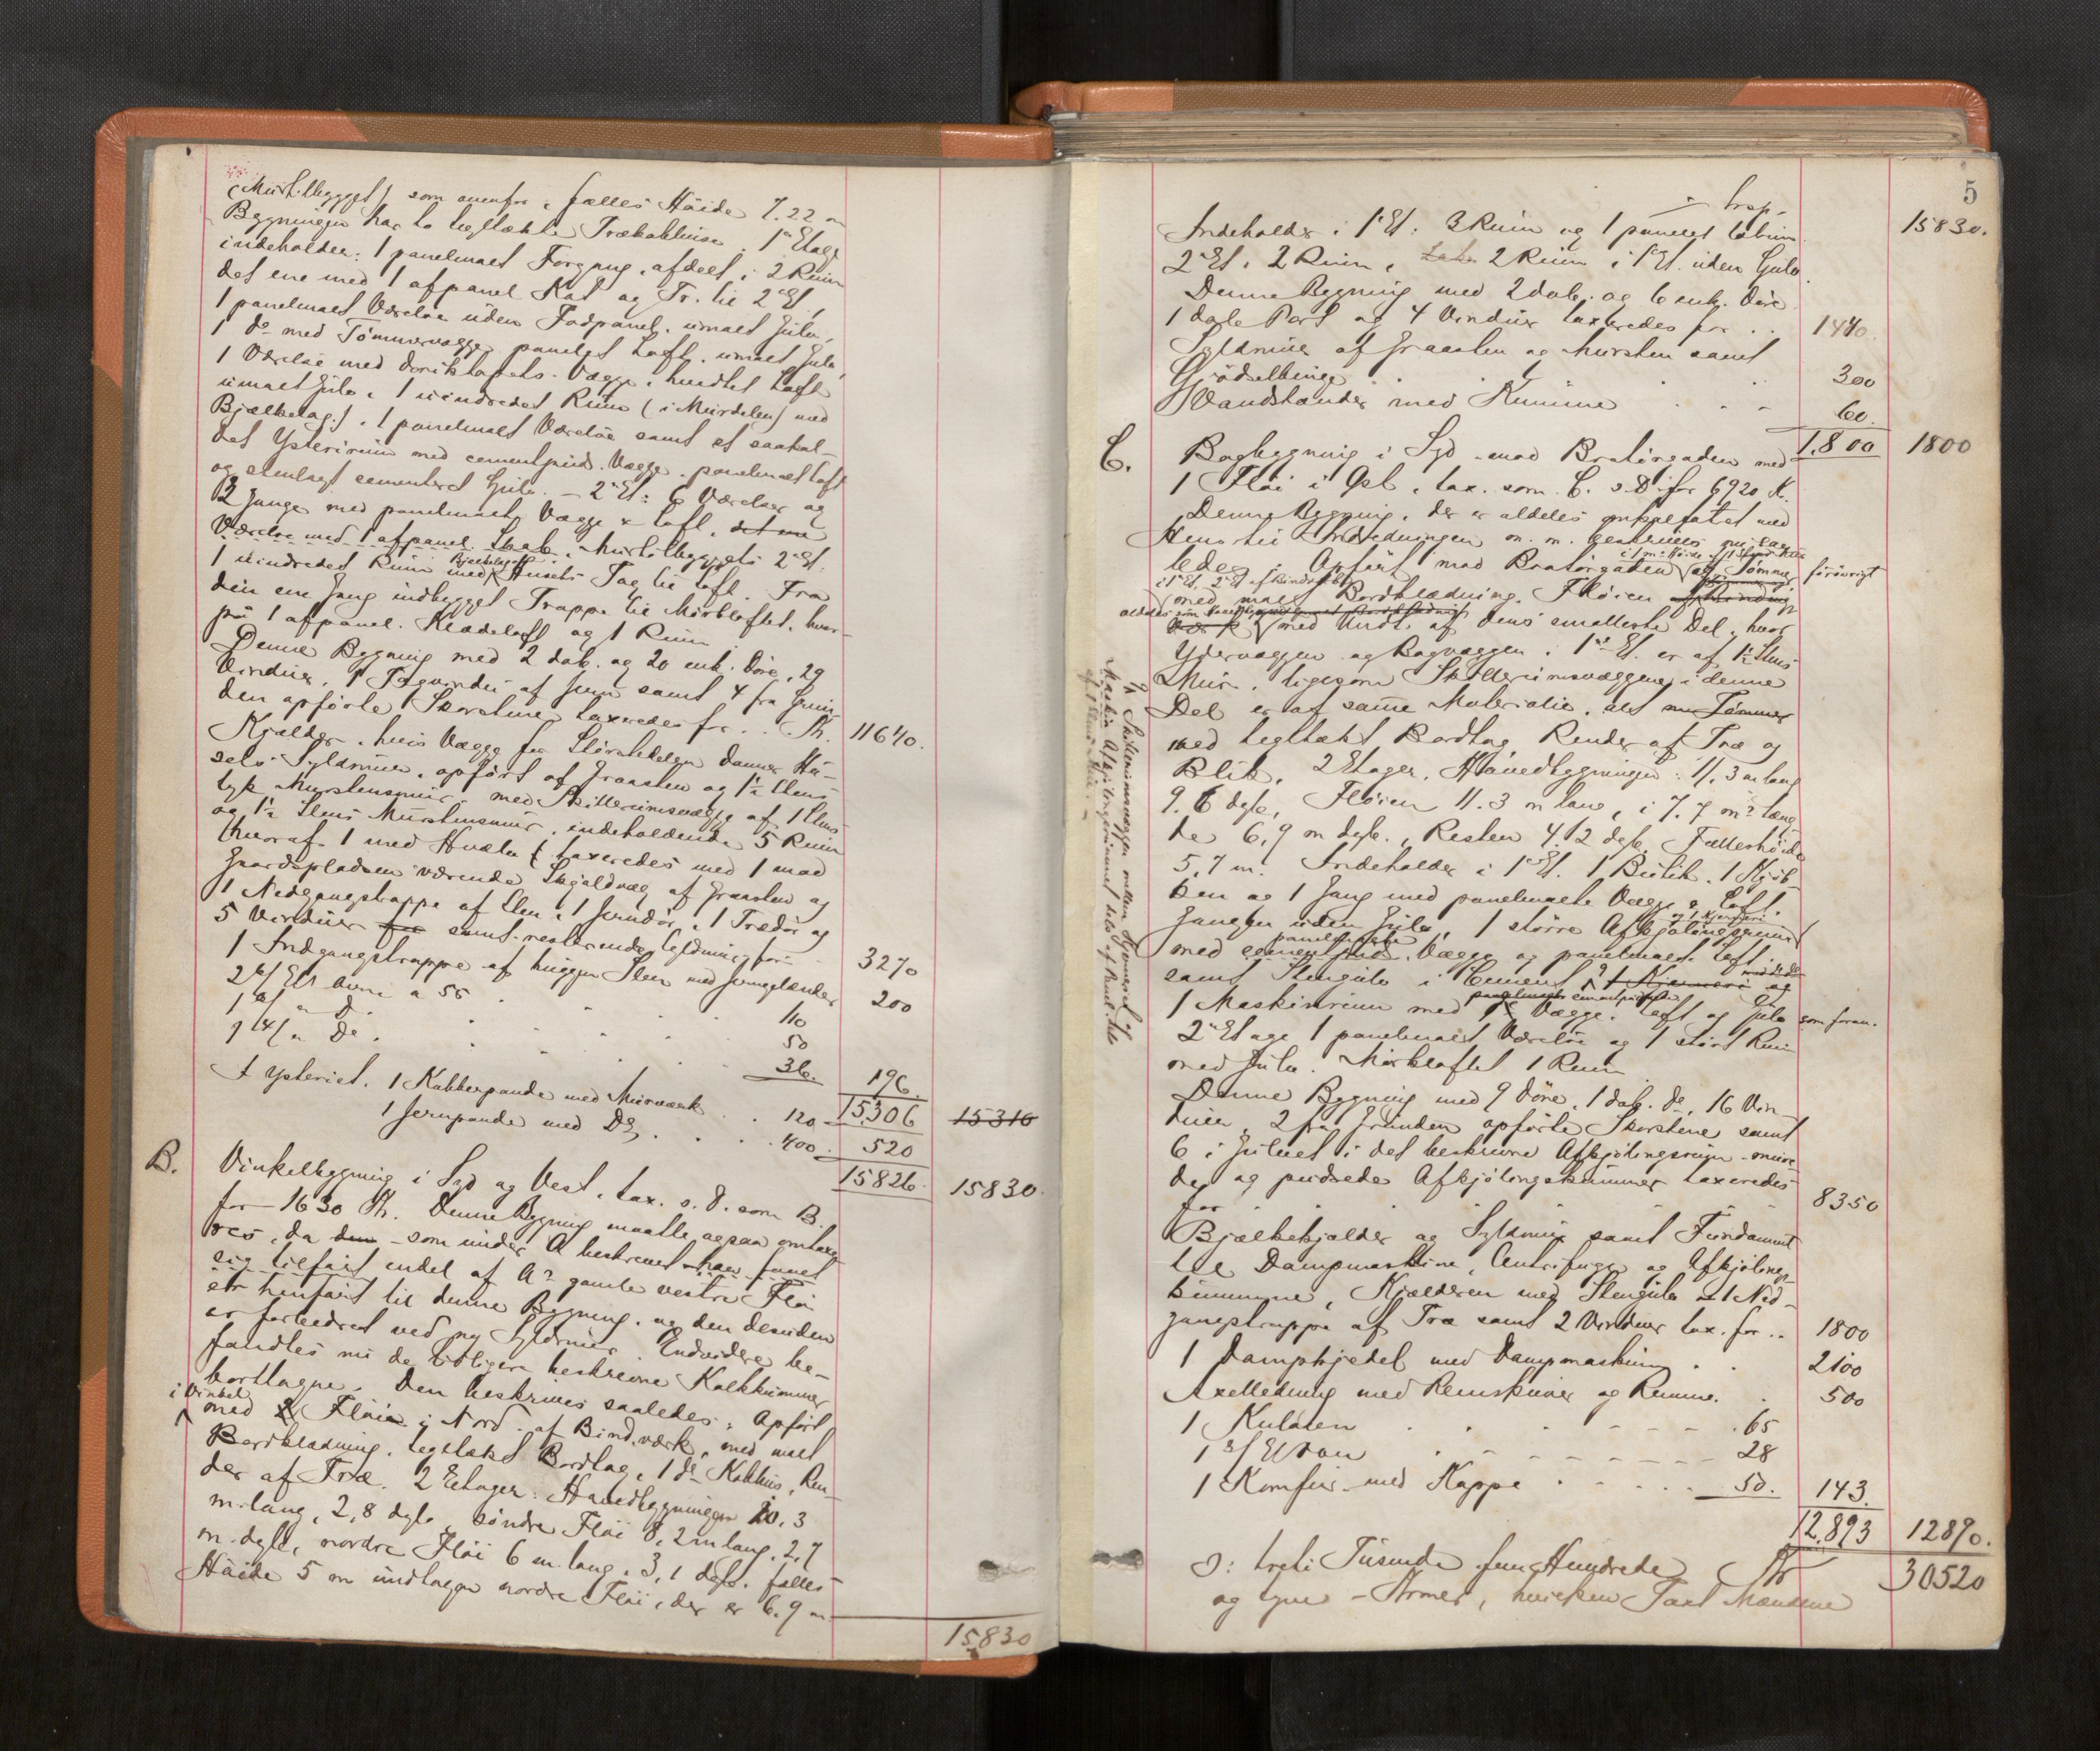 (Murtilbygget) som ovenfor, fælles Höide 7.22 m
Bygningen har to tegltækte Trækobkuse. 1ste Etage
indeholder: 1 panelmalt Forgang, afdelt i 2 Rum
det ene med 1 afpanel Kot og Tr. til 2d Et,
1 panelmalt Værelse uden Fodpanel, umalt Gulv,
1 do med Tömmervægge panelet Loft, umalt Gulv,
1 Værelse med Vægge, hvidtet Loft
umalt Gulv, 1 uindredet Rum (i Murdelen) med
Bjælkelag), 1 panelmalt Værelse samt et saakal-
det Ysterirum med cementpuds. Vægge, panelmalt Loft
og stenlagt cementeret Gulv. - 2d Et: 6 Værelser og
2 Gange med panelmalte Vægge & Loft, det ene
Værelse med 1 afpanel Skab. Murtilbyggets 2d Et:
1 uindredet Rum med Bjælkelag Husets Tag til Loft. Fra
den ene Gang indbygget Trappe til Mörkloftet, hvor-
på 1 afpanel. Klædeloft og 1 Rum.
Denne Bygning med 2 dob. og 20 enk. Döre, 29
Vinduer, 1 Tagvindu af Jern samt 4 fra Grun-
den opförte Skorstene taxeredes for .. Kr. 11640.
Kjælder, hvis Vægge for Störstedelen danner Hu-
sets Syldmure, opfört af Graasten og 1½ Stens
tyk Murstensmur, med Skillerumsvægge af 1 Stens
og 1½ Stens Murstensmur, indeholdende 5 Rum
hvoraf 1 med Hvælv ( taxeredes med 1 mod
Gaardspladsen værende Skjoldvæg af Graasten og
1 Nedgangstrappe af Sten, 1 Jerndör, 1 Trædör og
5 Vinduer for samt resterende Syldmur for 3270
1 Indgangstrappe af huggen Sten med Jerngelænder 200
2 Et. Ovne a 55 . . . 110
1 " Do . . . . 50
1 " Do . . . . 36. 196.
15306 15310
I Ysteriet. 1 Kobberpande med Murværk . . 120
1 Jernpande med Do . . . 400. 520
15826. 15830.
B. Vinkelbygning i Syd og Vest, tax. s. D. som B.
for 1630 Kr. Denne Bygning maatte ogsaa omtaxe-
res, da den som under A beskrevet har faaet
sig tilföiet endel af A's gamle vestre Flöi
er henfört til denne Bygning, og den desuden
er forbedret ved ny Syldmur. Endvidere be-
fandtes nu de tidligere beskrevne Kalkkummer
borttagne. Den beskrives saaledes: Opfört
i Vinkel
med 2 Flöie i Nord af Bindværk, med malt
Bordklædning, tegltækt Bordtag, 1 do Kobhus, Ren-
der af Træ. 2 Etager. Hovedbygningen 20,3
m. lang, 2,8 dyb, söndre Flöi 8,2 m lang, 2,7
m. dyb, nordre Flöi 6 m. lang, 3,1 dyb, fælles
Höide 5 m undtagen nordre Flöi, der er 6,9 m.
15830
5
15830.
Trap-
Indeholder i 1ste Et: 3 Rum og 1 panelet
2d Et, 2 Rum, 2 Rum i 1ste Et. uden Gulv.
Denne Bygning med 2 dob. og 6 enk. Döre
1 dob Port og 4 Vinduer taxeredes for . . 1440.
Syldmur af Graasten og Mursten samt
Gjödselbinge . . . 300
1 Vandstander med Kumme . . . 60.
1.800 1800
C. Bagbygning i Syd mod Bratörgaden med
1 Flöi i Öst, tax. som C. s. D. for 6920 K.
Denne Bygning, der er aldeles ombyttet med
Hensyn til Indredningen m. m. beskrives nu saa-
ledes: Opfört mod Bratörgaden af Tömmer forövrigt
i 1ste Et, 2d Et af Bindværk
med malt Bordklædning. Flöien
med Undt. af dens smalleste Del, hvor
Ydervæggen og Bagvæggen i 1ste Et. er af 1½ Stens
Mur, ligesom Skillerumsvæggene i denne
Del er af samme Materialie, alt Tömmer
med tegltækt Bordtag, Render af Træ og
Blik. 2 Etager, Hovedbygningen: 11,3 m lang
9.6 dyb, Flöien 11.3 m lang, i 7.7 ms Læng-
de 6,9 m dyb., Resten 4.2 dyb. Fælleshöide
5,7 m. Indeholder i 1ste Et. 1 Butik, 1 Kjök-
ken og 1 Gang med panelmalte Vægge & Loft,
og 1 Kjerneri
Gangen uden Gulv, 1 större Afkjölingsrum
med cementpuds. Vægge og panelmalt Loft
samt Stengulv i Cement, 1 Kjerneri og
1 Maskinrum med Vægge, Loft og Gulv som foran.
2d Etage 1 panelmalt Værelse og 1 stort Rum
med Gulv. Mörkloftet 1 Rum
Denne Bygning med 9 Döre, 1 dob. do, 16 Vin-
duer, 2 fra Grunden opförte Skorstene samt
6 i Gulvet i det beskrevne Afkjölingsrum mure-
de og pudsede Afkjölingskummer taxeredes
for . . . . 8350
Bjælkekjelder og Syldmur samt Fundament
til Dampmaskine, Centrifuge og Afkjölings-
kummene, Kjælderen med Stengulv & 1 Ned-
gangstrappe af Træ samt 2 Vinduer tax. for .. 1800
1 Dampkjedel med Dampmaskine . . 2100
Axelledning med Remskiver og Remme. . 500
1 Kulovn . . . . 65
1 3/Et Ovn . . . . 28
1 Komfur med Kappe . . . . 50. 143.
12.893 12890.
Kr 30520
ɔ: treti Tusinde fem Hundrede
og tyve Kroner, hvilken Taxt Mændene
Skillerumsvæggen mellem Kjerneriet og
Maskin- Afkjölingsrummet dels af Bind. dels
af 1 Stens Mur.